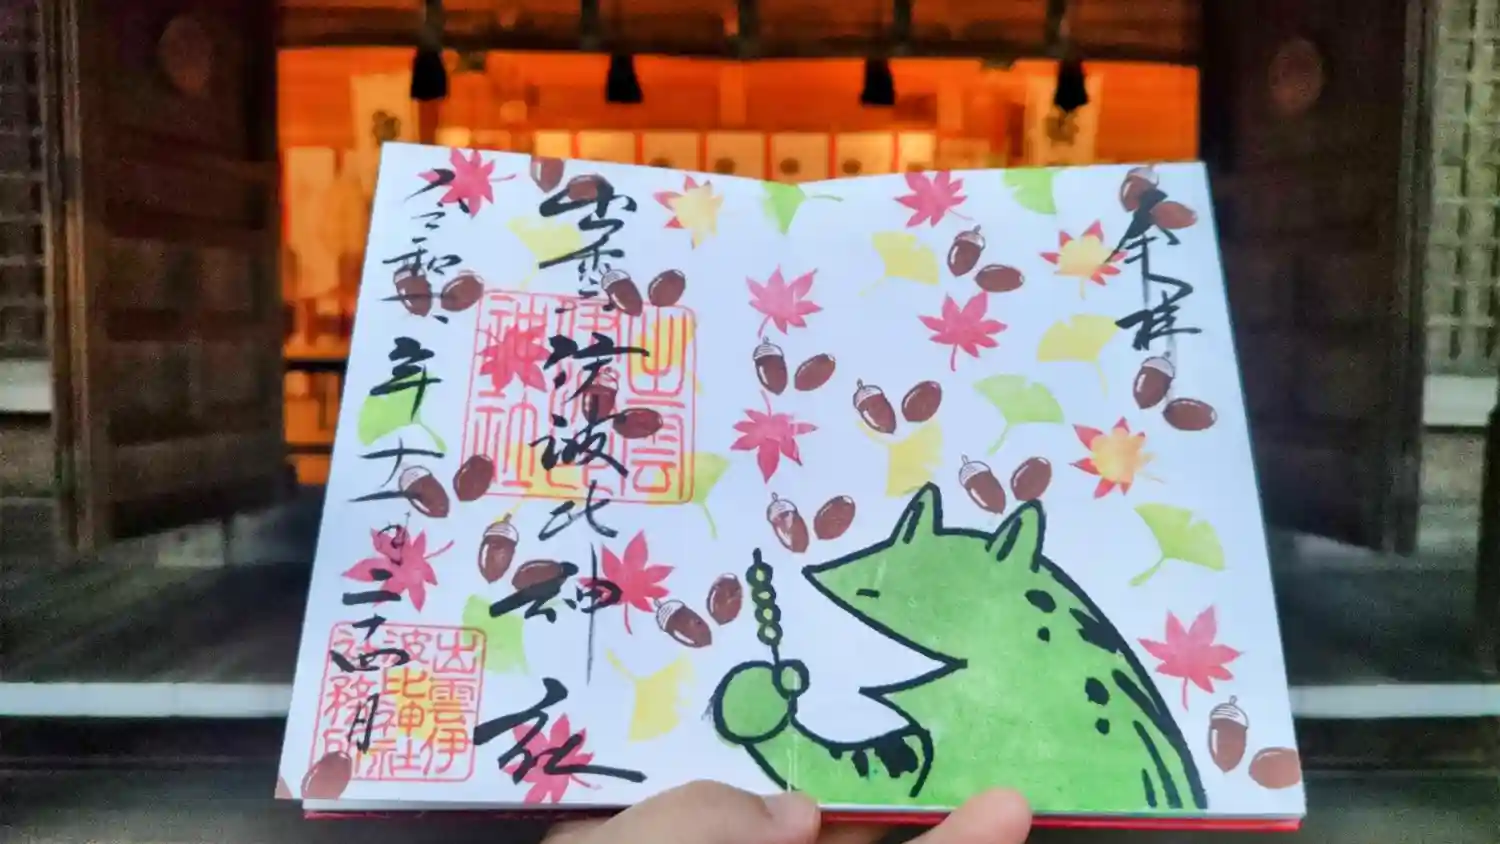 奉拝
出雲伊波比神社
出雲
伊波比
神社
令和六年十一月二十四日
出雲伊
波比神社
社務所